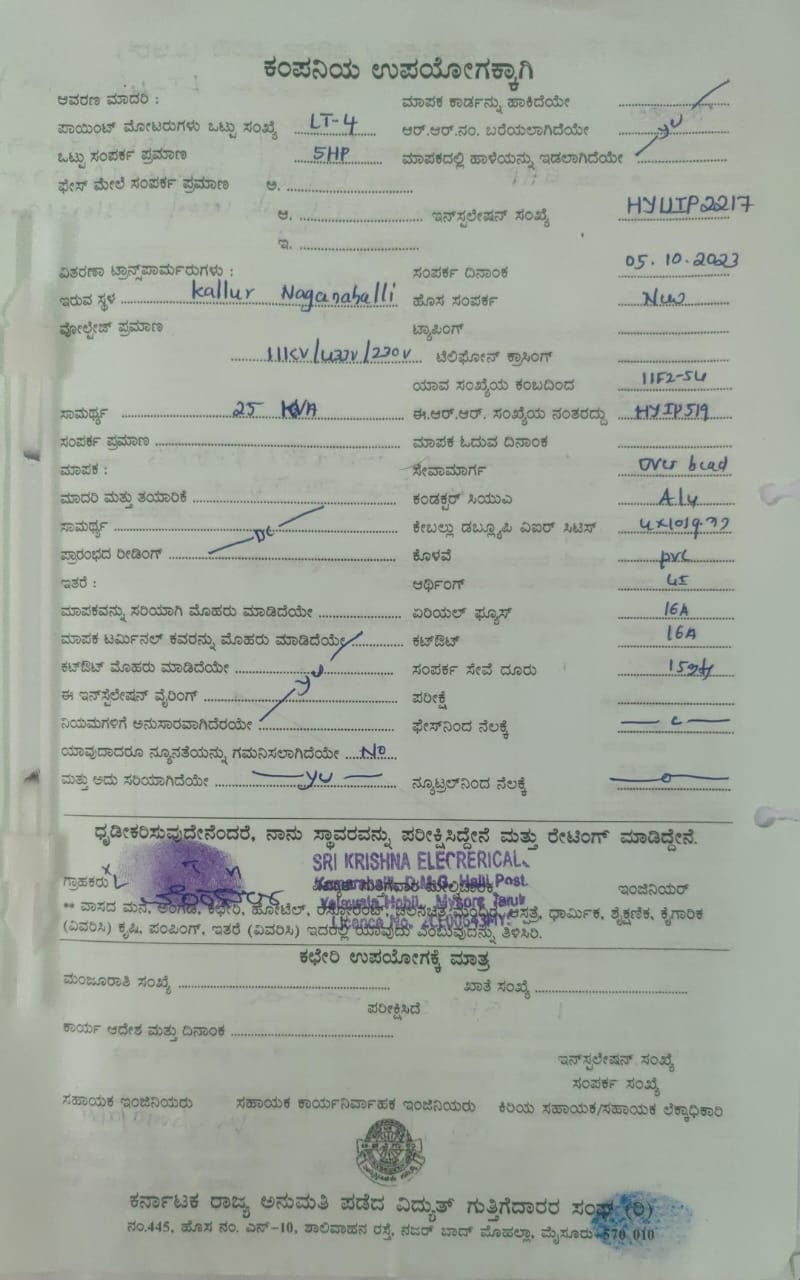 ಕಂಪನಿಯ ಉಪಯೋಗಕ್ಕಾಗಿ
ಆವರಣ ಮಾದರಿ : ಮಾಪಕ ಕಾರ್ಡನ್ನು ಹಾಕಿದೆಯೇ
ಪಾಯಿಂಟ್ ಮೋಟರುಗಳು ಒಟ್ಟು ಸಂಖ್ಯೆ LT-4 ಆರ್.ಆರ್.ನಂ. ಬರೆಯಲಾಗಿದೆಯೇ
ಒಟ್ಟು ಸಂಪರ್ಕ ಪ್ರಮಾಣ 5HP ಮಾಪಕದಲ್ಲಿ ಹಾಳೆಯನ್ನು ಇಡಲಾಗಿದೆಯೇ
ಫೇಸ್ ಮೇಲೆ ಸಂಪರ್ಕ ಪ್ರಮಾಣ ಅ.
ಆ. ಇನ್‌ಸ್ಟಲೇಷನ್ ಸಂಖ್ಯೆ HYUIP2217
ಇ.
ವಿತರಣಾ ಟ್ರಾನ್ಸ್‌ಪಾರ್ಮರುಗಳು : ಸಂಪರ್ಕ ದಿನಾಂಕ 05.10.2023
ಇರುವ ಸ್ಥಳ Kallur Naganahalli ಹೊಸ ಸಂಪರ್ಕ New
ವೋಲ್ಟೇಜ್ ಪ್ರಮಾಣ ಟ್ಯಾಪಿಂಗ್
11KV/433V/230V ಟೆಲಿಫೋನ್ ಕ್ರಾಸಿಂಗ್
ಯಾವ ಸಂಖ್ಯೆಯ ಕಂಬದಿಂದ
ಸಾಮರ್ಥ್ಯ 25 KVA ಈ.ಆರ್.ಆರ್. ಸಂಖ್ಯೆಯ ನಂತರದ್ದು HYIP519
ಸಂಪರ್ಕ ಪ್ರಮಾಣ ಮಾಪಕ ಓದುವ ದಿನಾಂಕ
ಮಾಪಕ : ಸೇವಾಮಾರ್ಗ Over head
ಮಾದರಿ ಮತ್ತು ತಯಾರಿಕೆ ಕಂಡಕ್ಟರ್ ಸಿಯುಎ Aly
ಸಾಮರ್ಥ್ಯ ಕೇಬಲ್ಲು ಡಬ್ಲ್ಯೂಪಿ ವಿಐರ್ ಸಿಟಿಸ್
ಪ್ರಾರಂಭದ ರೀಡಿಂಗ್ DC ಕೊಳವೆ pvc
ಇತರೆ : ಆರ್ಥಿಂಗ್
ಮಾಪಕವನ್ನು ಸರಿಯಾಗಿ ಮೊಹರು ಮಾಡಿದೆಯೇ ಏರಿಯಲ್ ಫ್ಯೂಸ್ 16A
ಮಾಪಕ ಟರ್ಮಿನಲ್ ಕವರನ್ನು ಮೊಹರು ಮಾಡಿದೆಯೇ ಕಟ್‌ಔಟ್ 16A
ಕಟ್‌ಔಟ್ ಮೊಹರು ಮಾಡಿದೆಯೇ ಸಂಪರ್ಕ ಸೇವೆ ದೂರು
ಈ ಇನ್‌ಸ್ಟೆಲೇಷನ್ ವೈರಿಂಗ್ ಪರೀಕ್ಷೆ
ನಿಯಮಗಳಿಗೆ ಅನುಸಾರವಾಗಿದೆರಯೇ ಫೇಸ್‌ನಿಂದ ನೆಲಕ್ಕೆ
ಯಾವುದಾದರೂ ನ್ಯೂನತೆಯನ್ನು ಗಮನಿಸಲಾಗಿದೆಯೇ No
ಮತ್ತು ಅದು ಸರಿಯಾಗಿದೆಯೇ ನ್ಯೂಟ್ರಲ್‌ನಿಂದ ನೆಲಕ್ಕೆ
ಧೃಡೀಕರಿಸುವುದೇನೆಂದರೆ, ನಾನು ಸ್ಥಾವರವನ್ನು ಪರೀಕ್ಷಿಸಿದ್ದೇನೆ ಮತ್ತು ರೇಟಿಂಗ್ ಮಾಡಿದ್ದೇನೆ.
SRI KRISHNA ELECRERICAL
ಗ್ರಾಹಕರು D.M.G. Halli Post. ಇಂಜಿನಿಯರ್
Yelawala Hobli, Mysore Taluk
** ವಾಸದ ಮನೆ, ಅಂಗಡಿ, ಕಛೇರಿ, ಹೋಟೆಲ್, ರೆಸ್ಟೋರೆಂಟ್, ಚಲನಚಿತ್ರ ಮಂದಿರ, ಆಸ್ಪತ್ರೆ, ಧಾರ್ಮಿಕ, ಶೈಕ್ಷಣಿಕ, ಕೈಗಾರಿಕ
(ವಿವರಿಸಿ) ಕೃಷಿ, ಪಂಪಿಂಗ್, ಇತರೆ (ವಿವರಿಸಿ) ಇದರಲ್ಲಿ ಯಾವುದು ಎಂಬುವುದನ್ನು ತಿಳಿಸಿರಿ.
ಕಛೇರಿ ಉಪಯೋಗಕ್ಕೆ ಮಾತ್ರ
ಮಂಜೂರಾತಿ ಸಂಖ್ಯೆ ಖಾತೆ ಸಂಖ್ಯೆ
ಪರೀಕ್ಷಿಸಿದೆ
ಕಾರ್ಯ ಆದೇಶ ಮತ್ತು ದಿನಾಂಕ
ಇನ್‌ಸ್ಟಲೇಷನ್ ಸಂಖ್ಯೆ
ಸಂಪರ್ಕ ಸಂಖ್ಯೆ
ಸಹಾಯಕ ಇಂಜಿನಿಯರು ಸಹಾಯಕ ಕಾರ್ಯನಿರ್ವಾಹಕ ಇಂಜಿನಿಯರು ಕಿರಿಯ ಸಹಾಯಕ/ಸಹಾಯಕ ಲೆಕ್ಕಾಧಿಕಾರಿ
ಕರ್ನಾಟಕ ರಾಜ್ಯ ಅನುಮತಿ ಪಡೆದ ವಿದ್ಯುತ್ ಗುತ್ತಿಗೆದಾರರ ಸಂಘ (ರಿ)
ನಂ.445, ಹೊಸ ನಂ. ಎನ್-10, ಶಾಲಿವಾಹನ ರಸ್ತೆ, ನಜರ್ ಬಾದ್ ಮೊಹಲ್ಲಾ, ಮೈಸೂರು-570 010